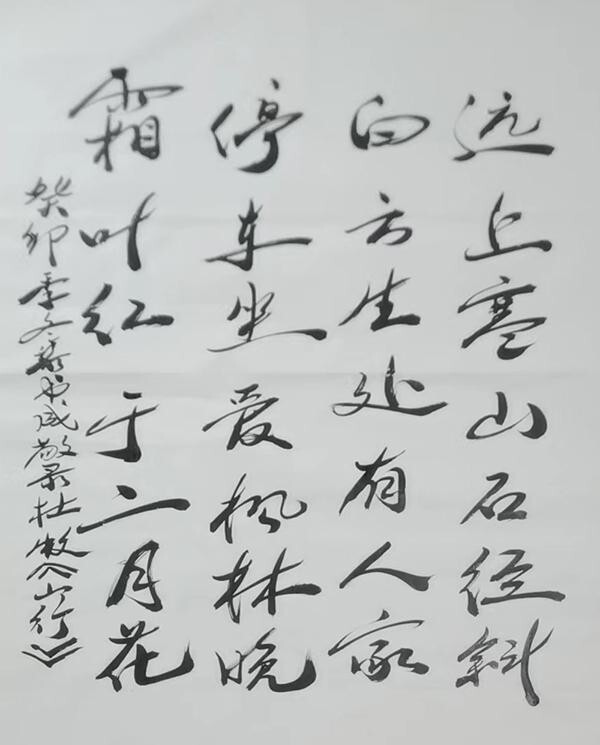 远上寒山石径斜
白云生处有人家
停车坐爱枫林晚
霜叶红于二月花
癸卯季冬 敬录杜牧《山行》